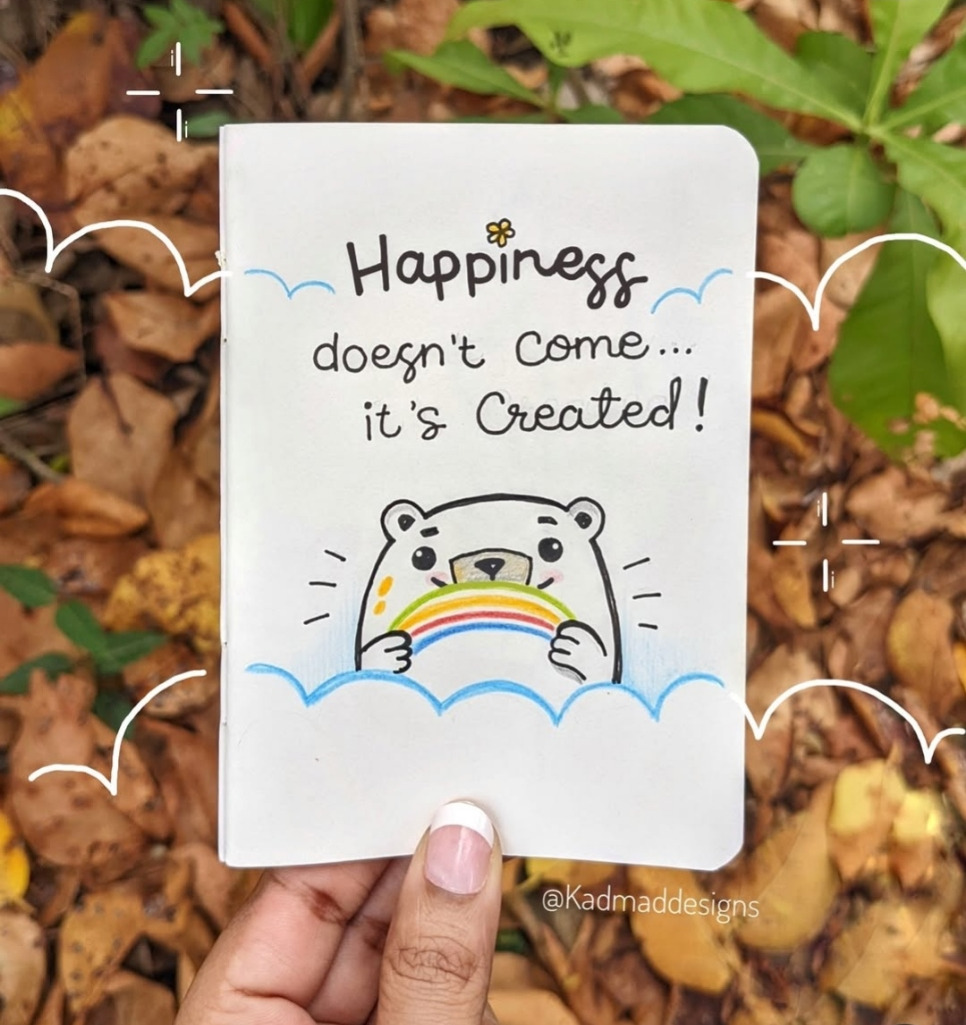 Happiness
doesn't come...
it's Created!
@Kadmaddesigns